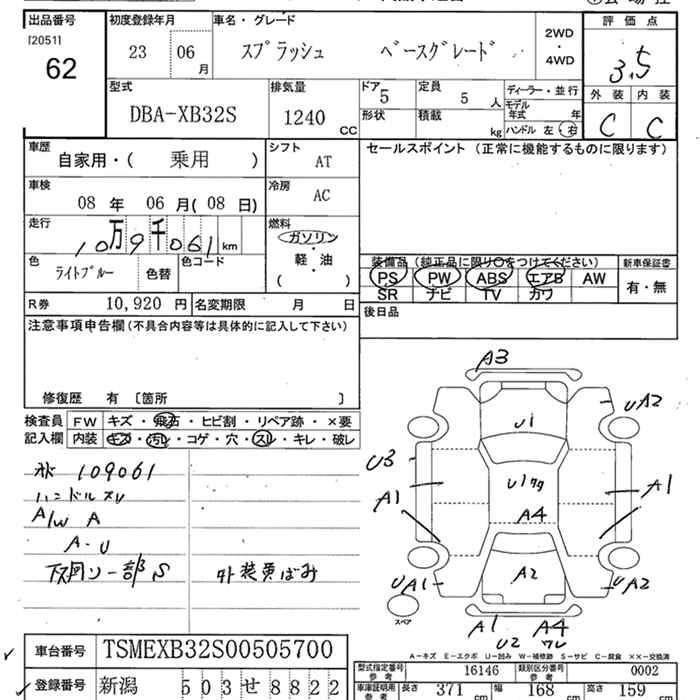 出品番号 初度登録年月 車名・グレード 評価点
[2051]
62
23 06月 スプラッシュ ベースグレード 2WD・4WD 3.5
型式 排気量 ドア 5 定員 5人 ディーラー・並行 外装 内装
DBA-XB32S 1240 CC 形状 積載 kg モデル年式 年 C C
ハンドル 左 右
車歴 シフト セールスポイント (正常に機能するものに限ります)
自家用・( 乗用 ) AT
車検 冷房
08年 06月(08日) AC
走行 燃料
10万9千061km ガソリン・軽・油
( )
装備品 (純正品に限り○をつけてください) 新車保証書
色 ライトブルー 色替 色コード PS PW ABS エアB AW 有・無
SR ナビ TV カワ
R券 10,920円 名変期限 月 日 後日品
注意事項申告欄(不具合内容等は具体的に記入して下さい)
修復歴 有 〔箇所 〕
検査員 FW キズ・飛石・ヒビ割・リペア跡・×要
記入欄 内装 キズ・汚レ・コゲ・穴・スレ・キレ・破レ
109061
ハンドルスレ
A/W A
A-U
外装黄ばみ
A3
UA2
U1
U3
A1
A4
A1
A2
UA1
UA2
スペア
A1 A4
U2
A-キズ E-エクボ U-凹み W-補修跡 S-サビ C-腐食 ××-交換済
車台番号 TSMEXB32S00505700
型式指定番号 参考 16146 類別区分番号 参考 0002
登録番号 新潟 503せ8822
車庫証明用 参考 長さ 371cm 幅 168cm 高さ 159cm